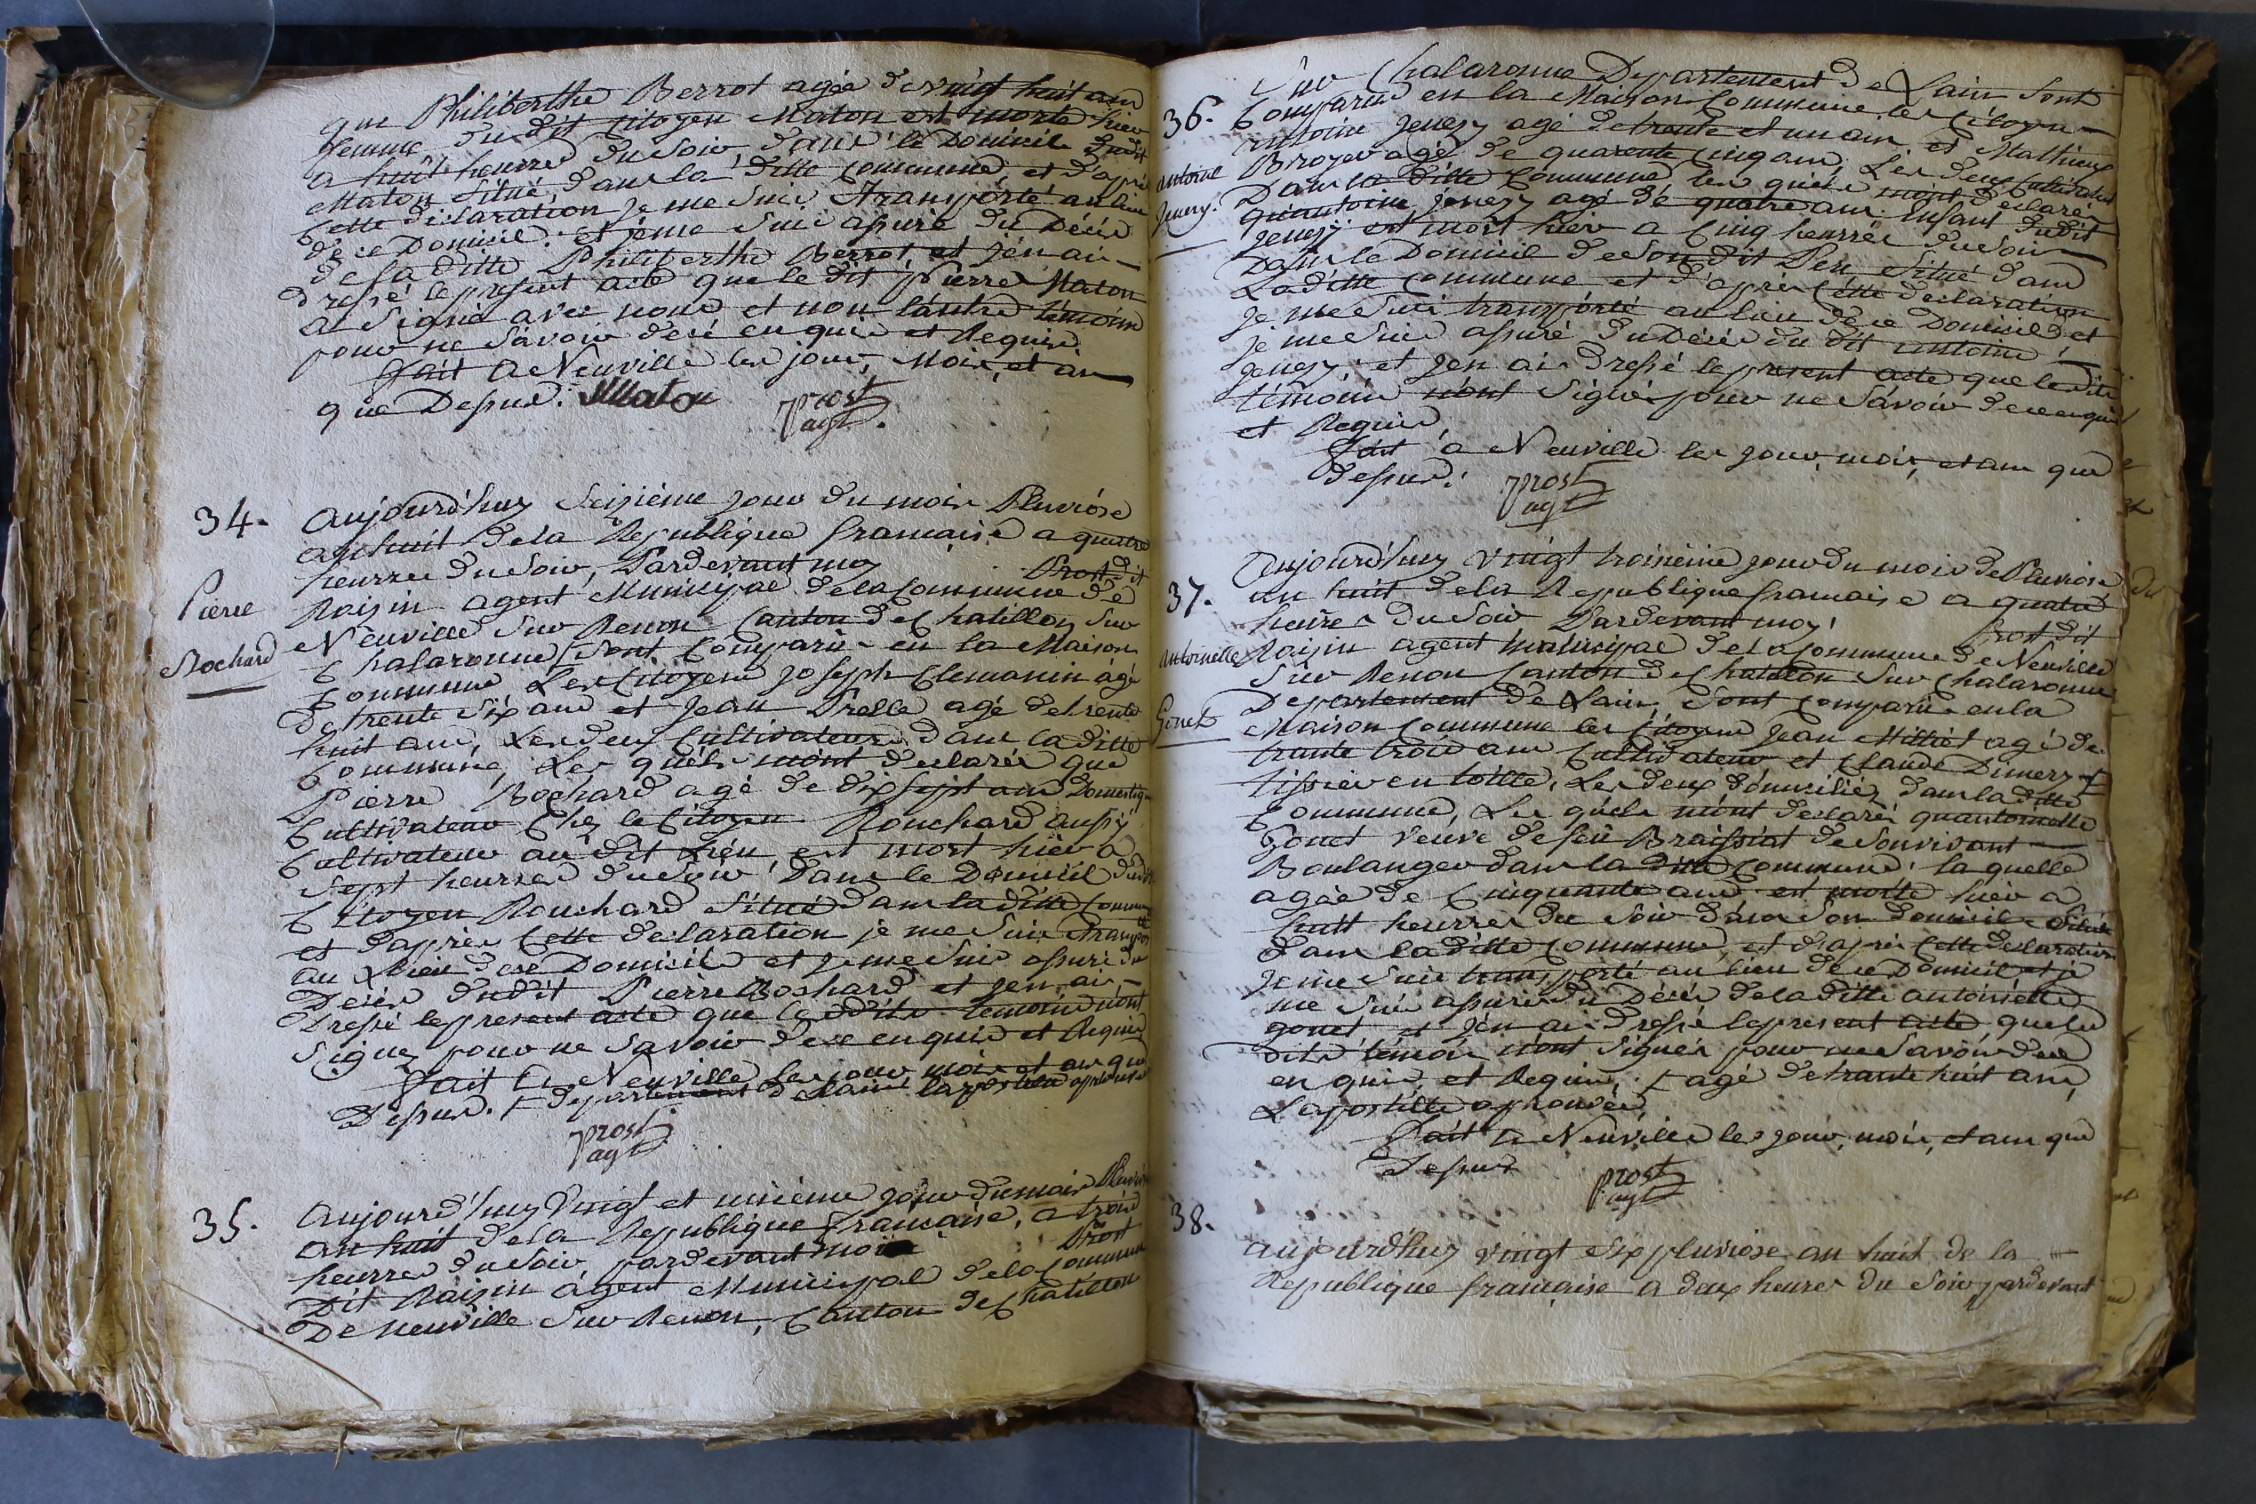 que Philiberthe Berrot agée de vingt huit ans
femme du dit Citoyen Maton est morte hier
a huit heurres du Soir dans le Domicile dudit
Maton Situé dans la ditte Commune, et d'après
Cette declaration je me Suis Transporté au lieu
de ce Domicil. et je me Suis assuré du Décès
de la ditte Philiberthe Berrot, et j'en ai
dressé le present acte que le dit Pierre Maton
a Signé avec nous et non l'autre témoins
pour ne Savoir de ce enquis et Requis
fait a Neuville les jour, Mois, et an
que Dessus. Maton Prost agt.
34. aujourd'huy Seizième jour du mois Pluviôse
an huit de la Republique francaise a quatre
heurres du Soir, Pardevant moy Prost dit
Pierre Raisin agent Municipal de la Commune de
Neuville Sur Renon Canton de Chatillon Sur
Rochard Chalaronne Sont Comparus en la Maison
Commune, Les Citoyens Joseph Clemanin âgé
de trente Six ans et Jean Prelle agé de trente
huit ans, Les deux Cultivateurs dans la ditte
Commune, Les quels m'ont declarés que
Pierre Rochard agé de dix Sept ans Domestique
Cultivateur Chez le Citoyen Rouchard aussy
Cultivateur au dit Lieu, est mort hier a
Sept heurres du Soir dans le Domicil dudit
Citoyen Rouchard Situé dans la ditte Commune
et d'après Cette declaration je me Suis Transporté
au Lieu de ce Domicil et je me Suis assuré du
Décès dudit Pierre Rochard et j'en ai
Dressé le present acte que les dits témoins n'ont
Signez pour ne Savoir de ce enquis et Requis
fait a Neuville les jour mois et an que
Dessus. departement de Lain Lapostille approuvée
Prost agt
35. aujourd'huy Vingt et unième jour du mois Pluviôse
an huit de la Republique française, a trois
heurres du Soir pardevant moi Prost
Dit Raisin agent Municipal de la Commune
De Neuville Sur Renon, Canton de Chatillon
Sur Chalaronne Departement de Lain Sont
36. Comparus en la Maison Commune les Citoyens
antoine Jenezy agé de trente et un ans, et Mathieux
antoine Broyer agé de quarente Cinq ans, Les deux Cultivateurs
Jenezy. Dans la ditte Commune les quels m'ont declarés
qu'antoine Jenezy agé de quatre ans Enfant dudit
Jenezy est mort hier a Cinq heurres du Soir
Dans le Domicil de Son dit Pere Situé dans
La ditte Commune et d'après Cette declaration
je me Suis transporté au lieu de ce Domicil et
je me Suis assuré du Décès du dit antoine
Jenezy, et j'en ai Dressé le present acte que les dits
témoins n'ont Signés pour ne Savoir de ce enquis
et Requis,
fait a Neuville les jour, mois, et an que
dessus. Prost agt
37. aujourd'huy vingt troisième jour du mois de Pluviose
an huit de la Republique francaise a quatre
heures du Soir Pardevant moy, Prost dit
antoinette Raisin agent municipal de la Commune de Neuville
Sur Renon Canton de Chatillon Sur Chalaronne
Gonet Departement de Lain, Sont Comparus en la
Maison Commune les Citoyens Jean Milliet agé de
trante trois ans Cultivateur et Claude Dimery
tissier en toille, Les deux domiciliés dans la ditte
Commune, Les quels m'ont declarés quantoinette
Gonet veuve de feu Braissiat de Sonvivant
Boulanger dans la ditte Commune, la quelle
agée de Cinquante ans est morte hier a
huit heurres du Soir dans Son domicile Situé
dans la ditte Commune, et d'après Cette declaration
je me Suis transporté au lieu de ce Domicil et je
me Suis assuré du Décès de la ditte antoinette
gonet et j'en ai Dressé le present acte que les
dits témoins n'ont Signés pour ne Savoir de ce
en quis et Requis, agé de trante huit ans,
Lapostille aprouvée,
fait a Neuville les jour, mois, et an que
dessus Prost agt
38.
aujourdhuy vingt six pluviose an huit de la
Republique française a deux heures du Soir pardevant